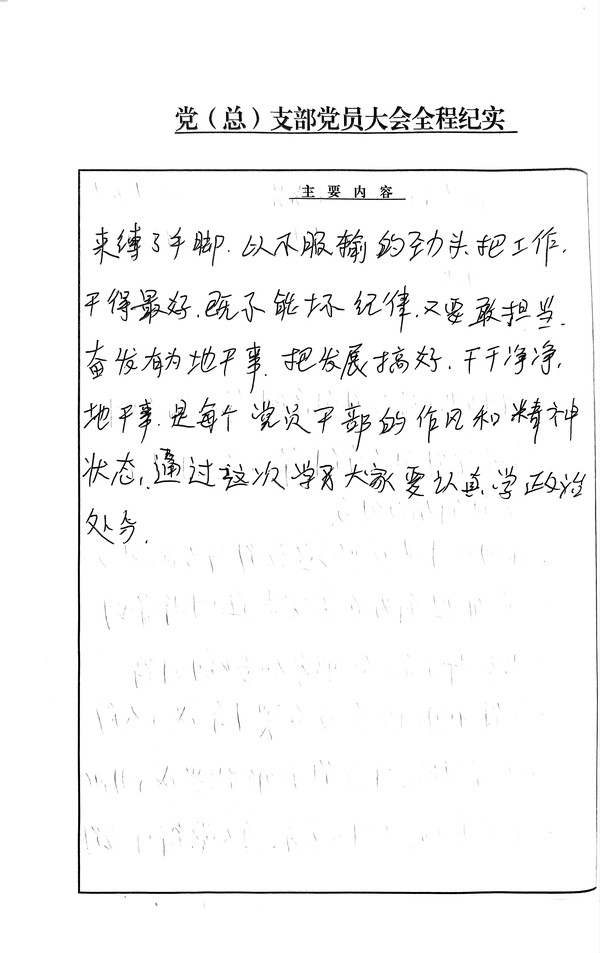 党（总）支部党员大会全程纪实
主要内容
束缚了手脚.以不服输的劲头把工作,
干得最好.既不能坏纪律.又要敢担当.
奋发有为地干事.把发展搞好.干干净净,
地干事.是每个党员干部的作风和精神
状态,通过这次学习大家要认真学政治
处分.